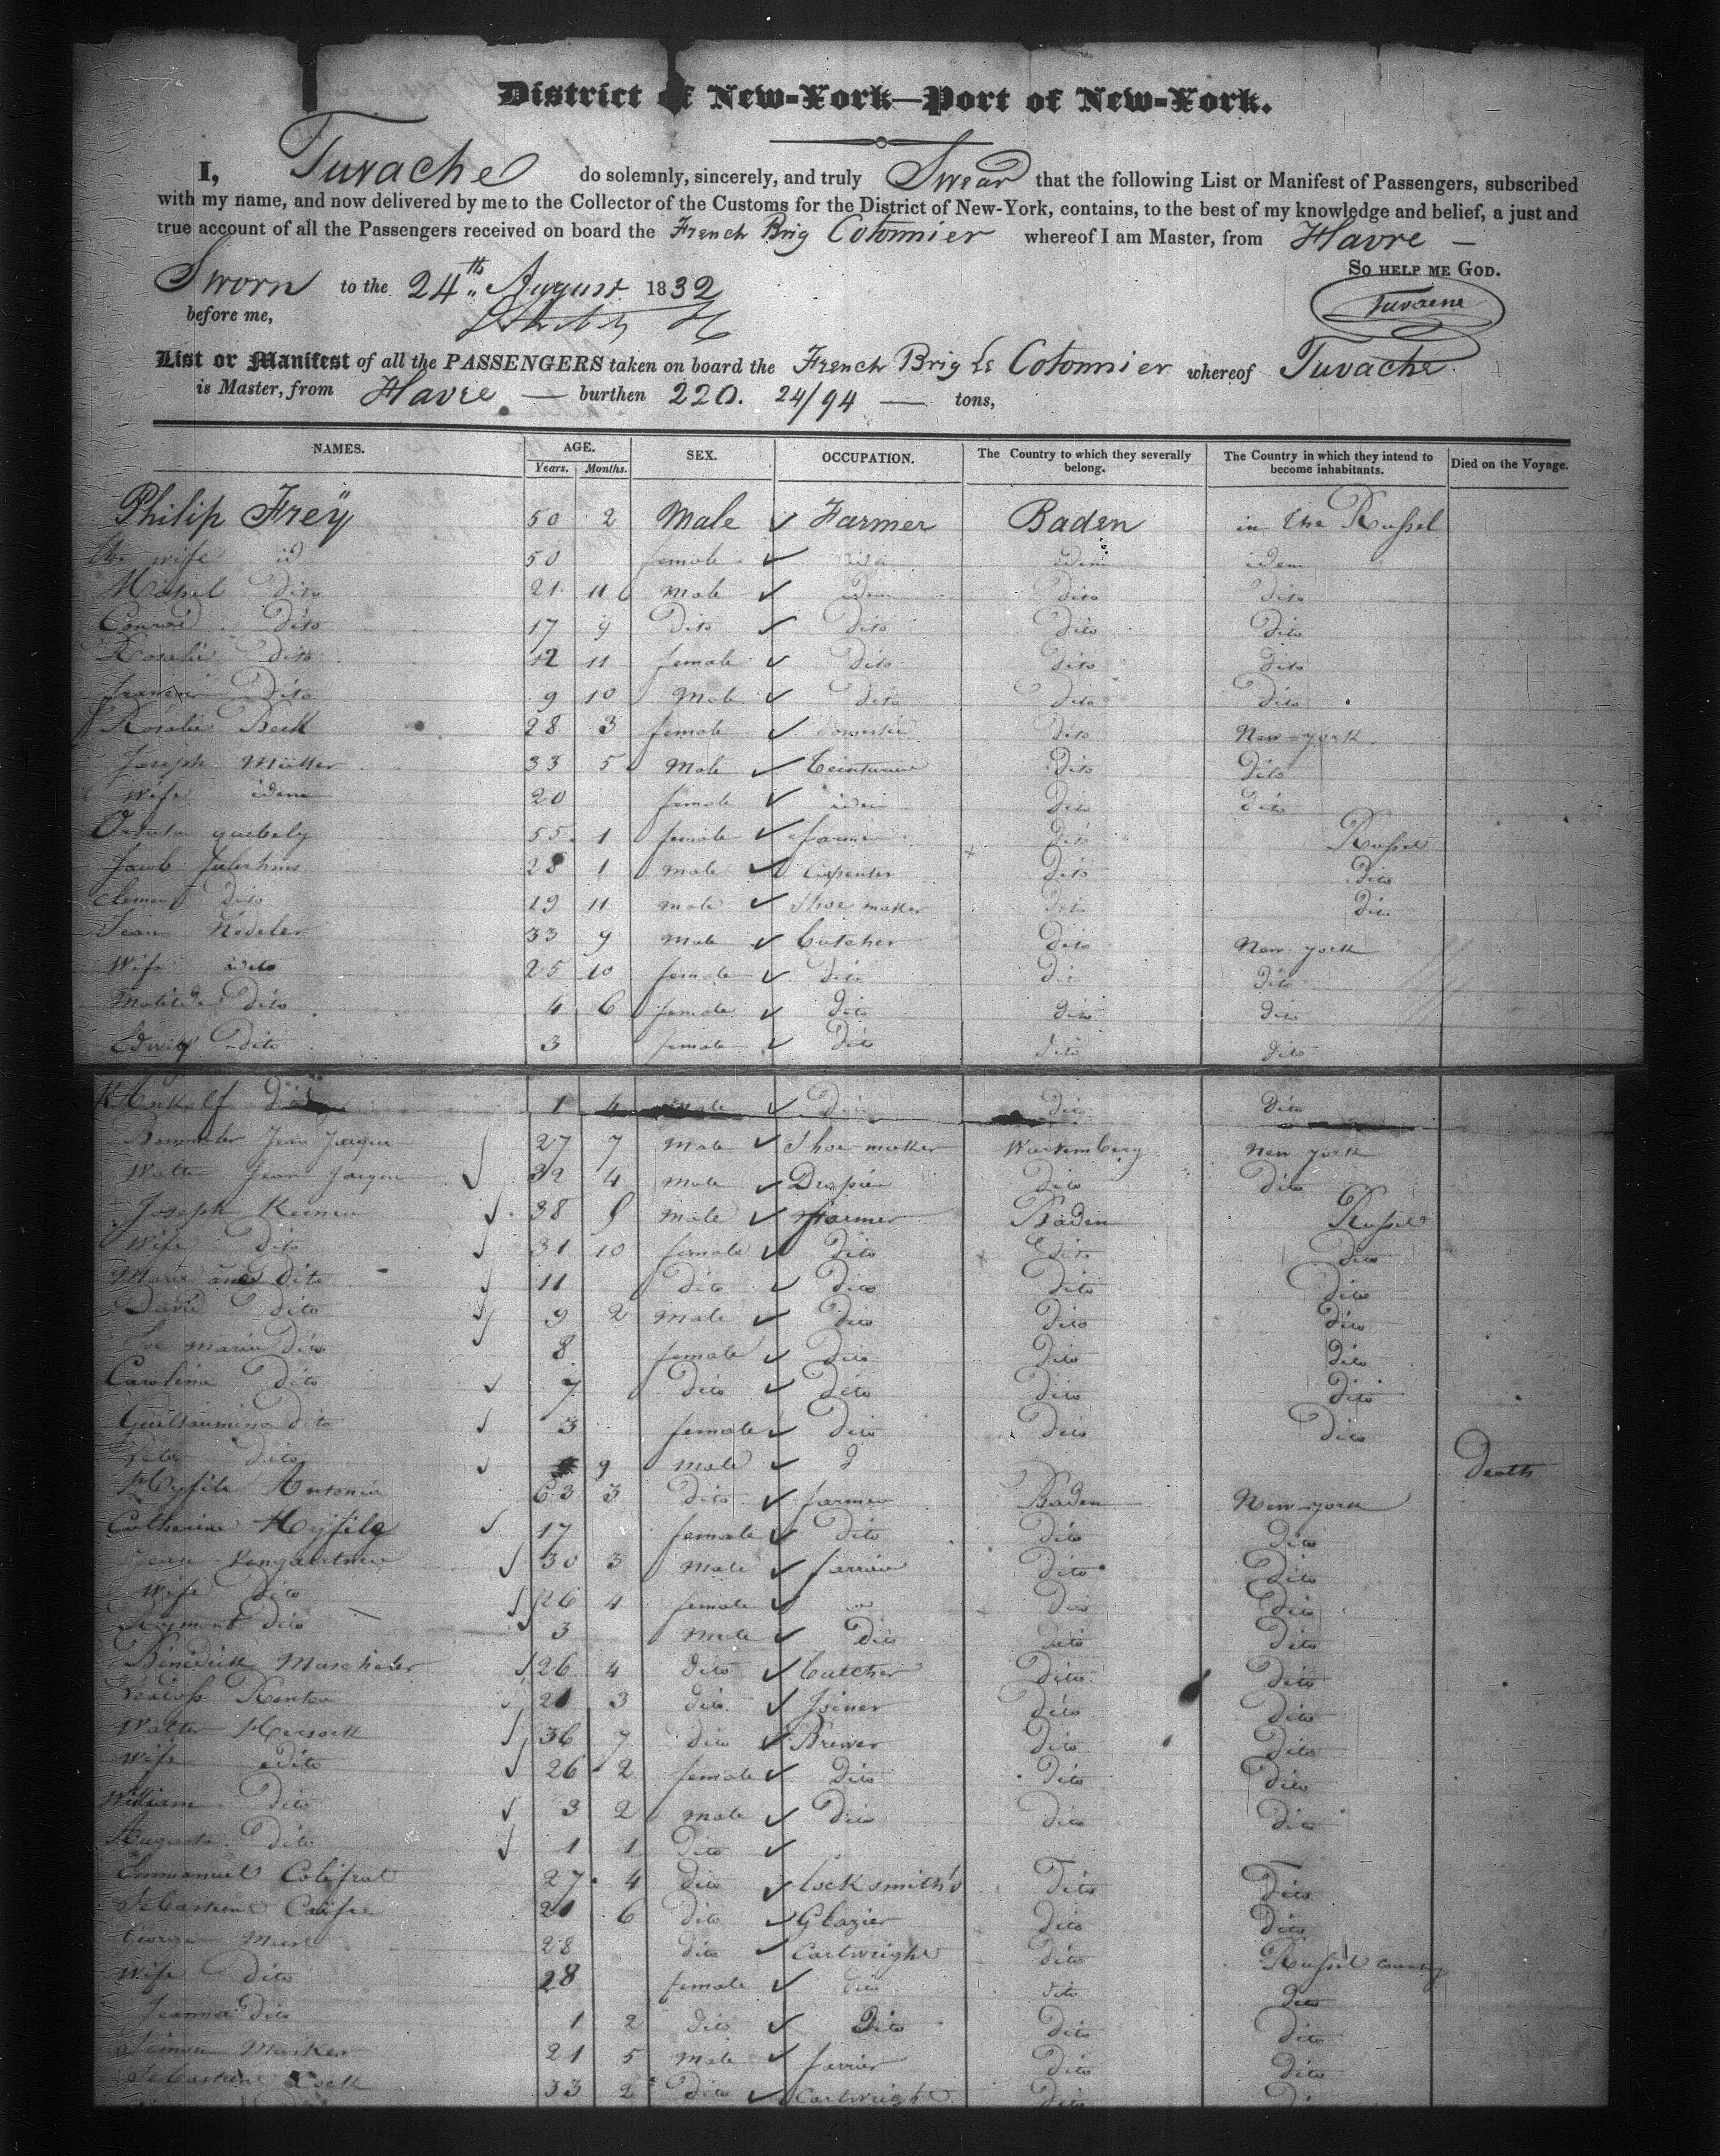 District of New-York—Port of New-York.
I, Tuvache do solemnly, sincerely, and truly Swear that the following List or Manifest of Passengers, subscribed
with my name, and now delivered by me to the Collector of the Customs for the District of New-York, contains, to the best of my knowledge and belief, a just and
true account of all the Passengers received on board the French Brig Cotonnier whereof I am Master, from Havre —
So help me God.
Sworn to the 24th August 1832
before me,
Tuvache
List or Manifest of all the PASSENGERS taken on board the French Brig Le Cotonnier whereof Tuvache
is Master, from Havre — burthen 220. 24/94 — tons,
NAMES. AGE. Years. Months. SEX. OCCUPATION. The Country to which they severally belong. The Country in which they intend to become inhabitants. Died on the Voyage.
Philip Frey 50 2 Male Farmer Baden in the Russel
wife id 50 female idem idem
Dito 21 11 Male idem Dito Dito
Conrad Dito 17 9 Dito Dito Dito Dito
Rosalie Dito 12 11 female Dito Dito Dito
Dito 9 10 Male Dito Dito Dito
Rosalie Beck 28 3 female Domestic Dito New-york
Joseph Müller 33 5 Male Dito Dito
Wife idem 20 female idem Dito Dito
55 1 female farmer Dito Russel
Jacob 28 1 male Carpenter Dito Dito
Clement Dito 19 11 male Shoe maker Dito Dito
Jean 33 9 Male Butcher Dito New york
Wife dito 25 10 female Dito Di Dito
Matilde Dito 4 6 female Dito Dito Dito
Dito 3 female Dito Dito Dito
1 4 male Dito Dito Dito
Jean Jacque 27 7 male Shoe-maker Wurtemberg New york
Walter Jean Jacque 32 4 male Drapier Dito Dito
Joseph 38 male farmer Baden Russel
Wife Dito 31 10 female Dito Dito Dito
Marie Dito 11 Dito Dito Dito Dito
David Dito 9 2 male Dito Dito Dito
marie Dito 8 female Dito Dito Dito
Carolina Dito 7 Dito Dito Dito Dito
Guillaumina Dito 3 female Dito Dito Dito
Peter Dito 9 male D Death
Hyfile Antonia 63 3 Dito farmer Baden New-york
Catherine Hyfile 17 female Dito Dito Dito
Jean 30 3 male farrier Dito Dito
Wife Dito 26 4 female Dito Dito
Dito 3 male Dito Dito Dito
Benedick 26 4 Dito Butcher Dito Dito
21 3 Dito Joiner Dito Dito
Walter 36 7 Dito Brewer Dito Dito
Wife dito 26 2 female Dito Dito Dito
William Dito 3 2 male Dito Dito Dito
Dito 1 1 Dito
Emmanuel 27 4 Dito locksmith's Dito Dito
21 6 Dito Glazier Dito Dito
28 Dito Cartwright Dito Russel County
Wife Dito 28 female Dito Dito Dito
Dito 1 2 Dito Dito Dito Dito
21 5 Male farrier Dito Dito
33 2 Dito Cartwright Dito